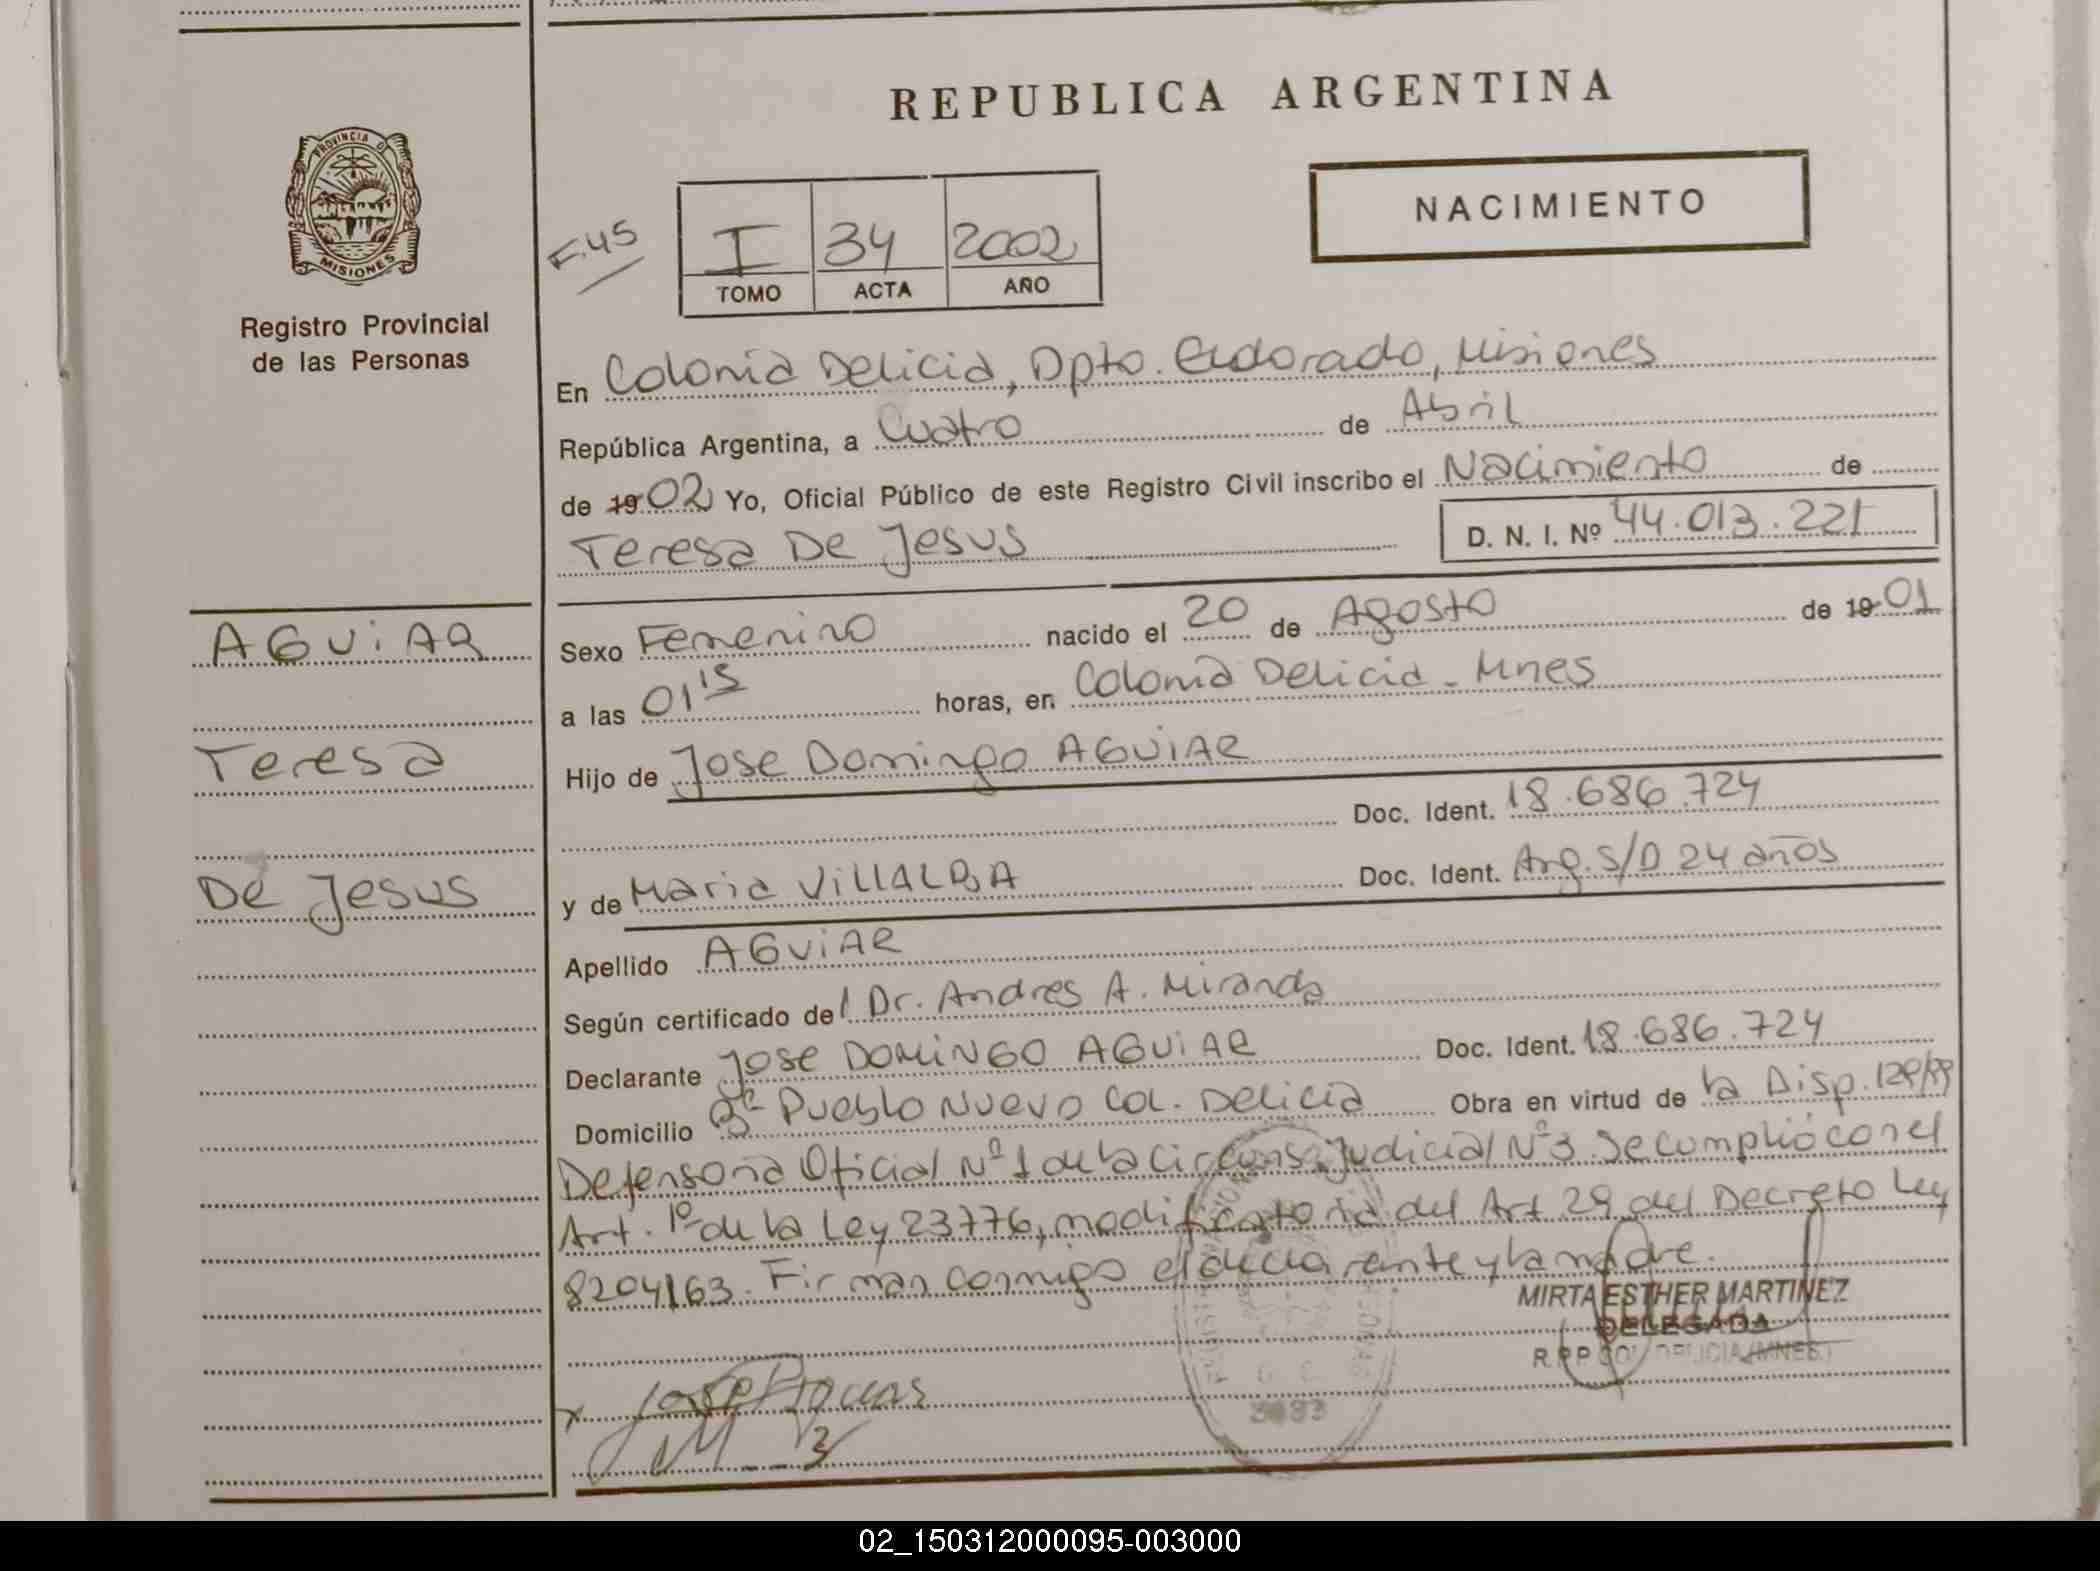 REPUBLICA ARGENTINA
PROVINCIA D
MISIONES
Registro Provincial
de las Personas
NACIMIENTO
F.45
I 34 2002
TOMO ACTA AÑO
En Colonia Delicia, Dpto. Eldorado, Misiones
República Argentina, a Cuatro de Abril
de 19 02 Yo, Oficial Público de este Registro Civil inscribo el Nacimiento de
Teresa De Jesus D. N. I. Nº 44.013.221
AGUiAR
Teresa
De Jesus
Sexo Femenino nacido el 20 de Agosto de 19 01
a las 01'15 horas, en Colonia Delicia - Mnes
Hijo de Jose Domingo AGUiAR
Doc. Ident. 18.686.724
y de Maria ViLLALBA Doc. Ident. Arg. S/D 24 años
Apellido AGUiAR
Según certificado del Dr. Andres A. Miranda
Declarante Jose DOMiNGO AGUiAR Doc. Ident. 18.686.724
Domicilio Bº Pueblo Nuevo Col. Delicia Obra en virtud de la Disp.
Defensoria Oficial Nº 1 de la Circuns. Judicial Nº 3. Se cumplió con el
Art. 1º de la Ley 23776, modificatoria del Art 29 del Decreto Ley
8204/63. Firman conmigo el declarante y la madre.
MIRTA ESTHER MARTINEZ
DELEGADA
R.P.P COL. DELICIA (MNES.)
x
3083
02_150312000095-003000